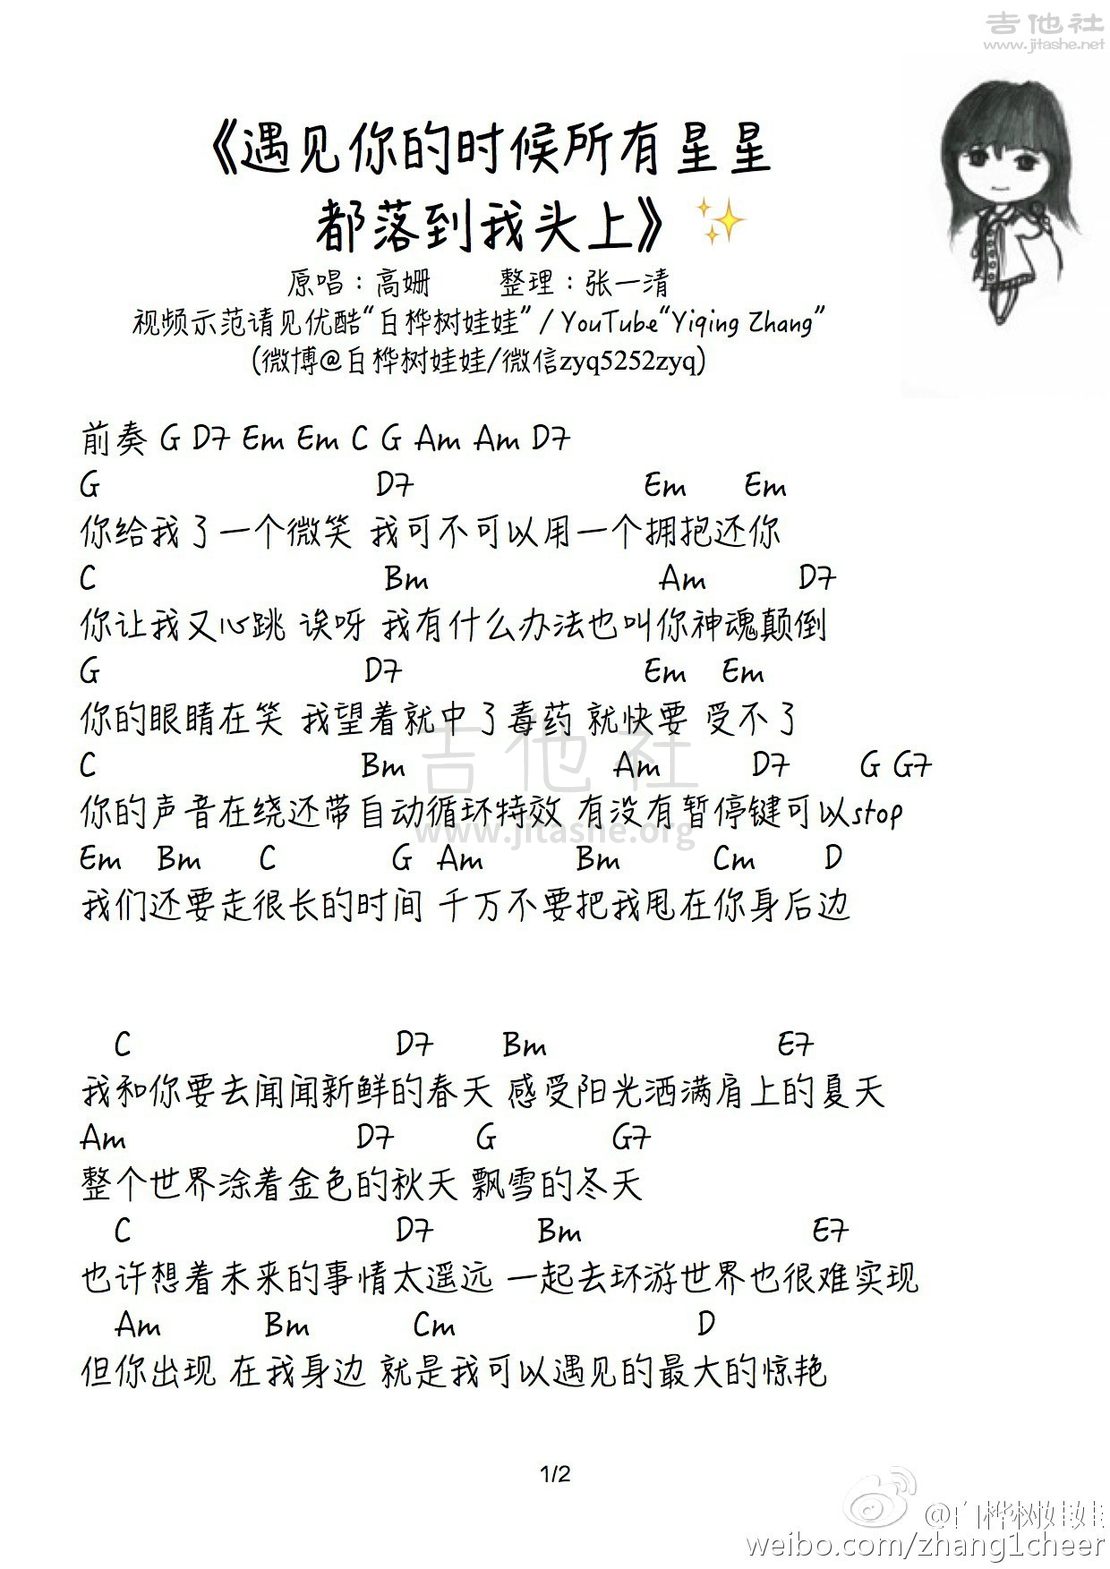 吉他社
www.jitashe.net
《遇见你的时候所有星星
都落到我头上》✨
原唱：高姗 整理：张一清
视频示范请见优酷“白桦树娃娃” / YouTube“Yiqing Zhang”
(微博@白桦树娃娃/微信zyq5252zyq)
前奏 G D7 Em Em C G Am Am D7
G D7 Em Em
你给我了一个微笑 我可不可以用一个拥抱还你
C Bm Am D7
你让我又心跳 诶呀 我有什么办法也叫你神魂颠倒
G D7 Em Em
你的眼睛在笑 我望着就中了毒药 就快要 受不了
C Bm Am D7 G G7
你的声音在绕还带自动循环特效 有没有暂停键可以stop
Em Bm C G Am Bm Cm D
我们还要走很长的时间 千万不要把我甩在你身后边
吉他社
www.jitashe.org
C D7 Bm E7
我和你要去闻闻新鲜的春天 感受阳光洒满肩上的夏天
Am D7 G G7
整个世界涂着金色的秋天 飘雪的冬天
C D7 Bm E7
也许想着未来的事情太遥远 一起去环游世界也很难实现
Am Bm Cm D
但你出现 在我身边 就是我可以遇见的最大的惊艳
1/2
@白桦树娃娃
weibo.com/zhang1cheer